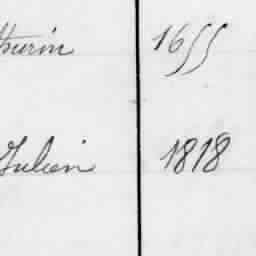 thurin 1655
Julien 1818